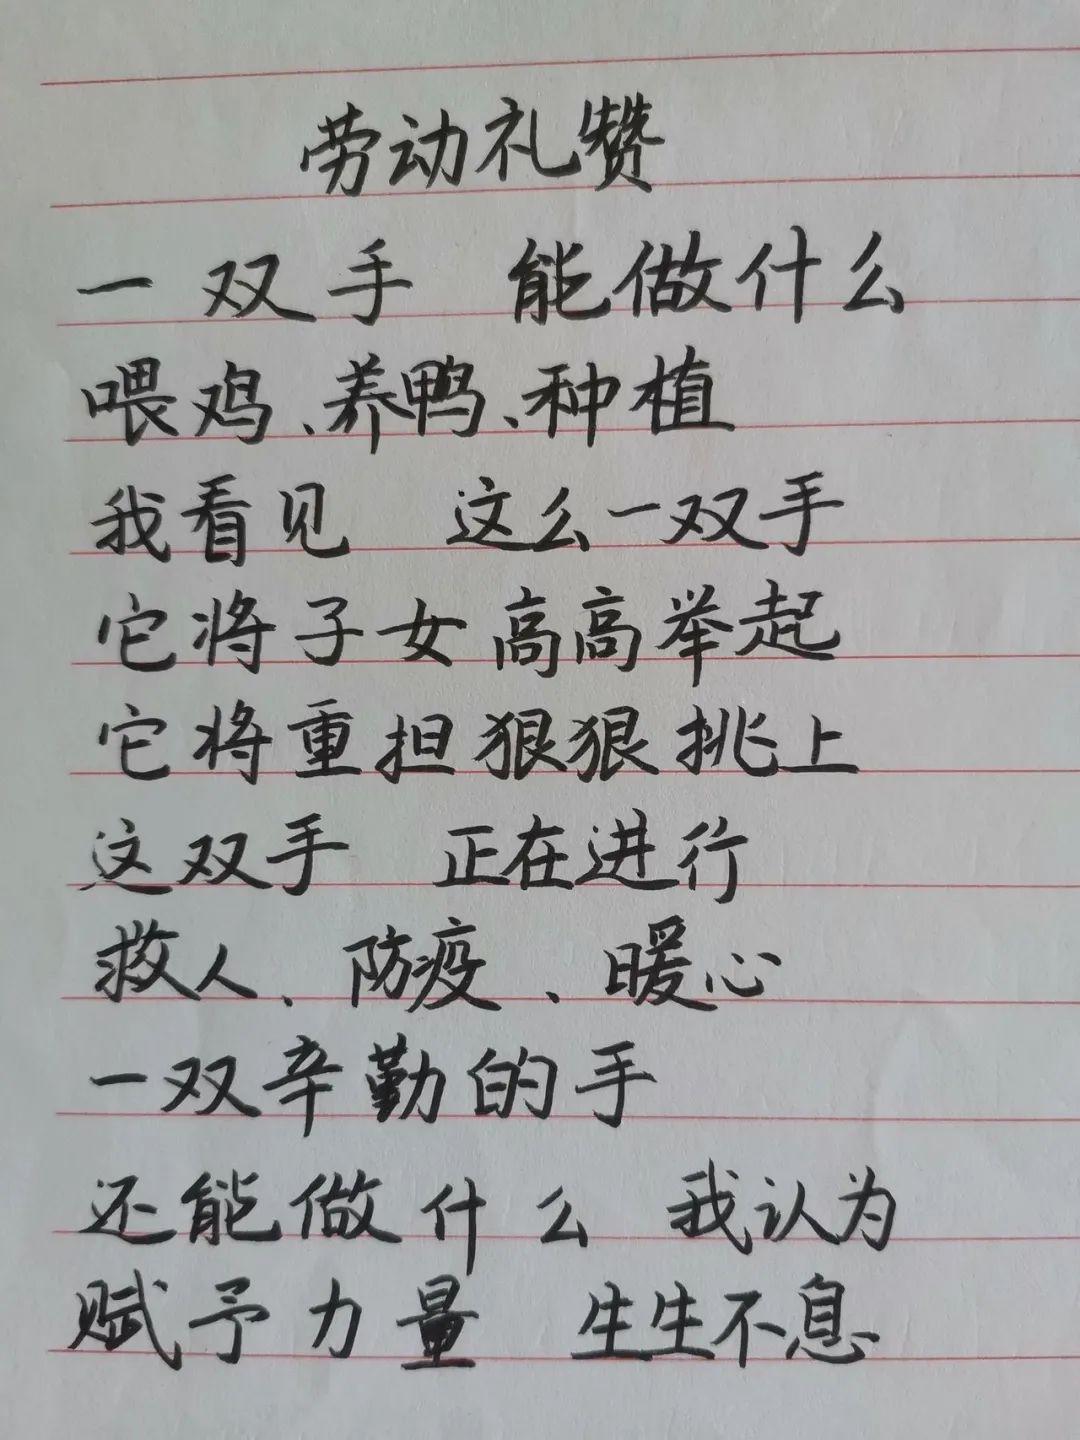 劳动礼赞
一双手 能做什么
喂鸡、养鸭、种植
我看见 这么一双手
它将子女高高举起
它将重担狠狠挑上
这双手 正在进行
救人、防疫、暖心
一双辛勤的手
还能做什么 我认为
赋予力量 生生不息